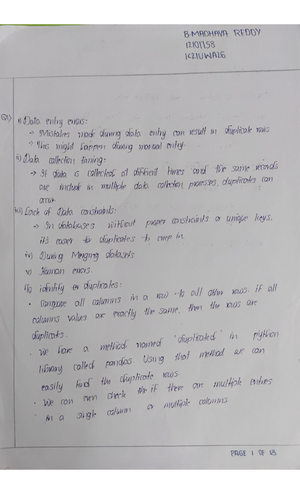 B. MADHAVA REDDY
12101758
K21UWA16
Q1)
i) Data entry errors:
→ Mistakes made during data entry can result in duplicate rows
→ This might happen during manual entry.
ii) Data collection timing:
→ If data is collected at different times and the same records
are include in multiple data collection processes, duplicates can
occur
iii) Lack of Data constraints:
→ In databases without proper constraints a unique keys,
it's easier to duplicates to creep in
iv) During Merging datasets
v) Human errors.
identify duplicates:
• Compare all columns in a row to all other rows. if all
columns values are exactly the same, then the rows are
duplicates.
• We have a method named 'duplicated' in Python
library called pandas. Using that method we can
easily find the duplicate rows
• We can even check the if there are multiple entries
in a single column or multiple columns
PAGE 1 OF 13